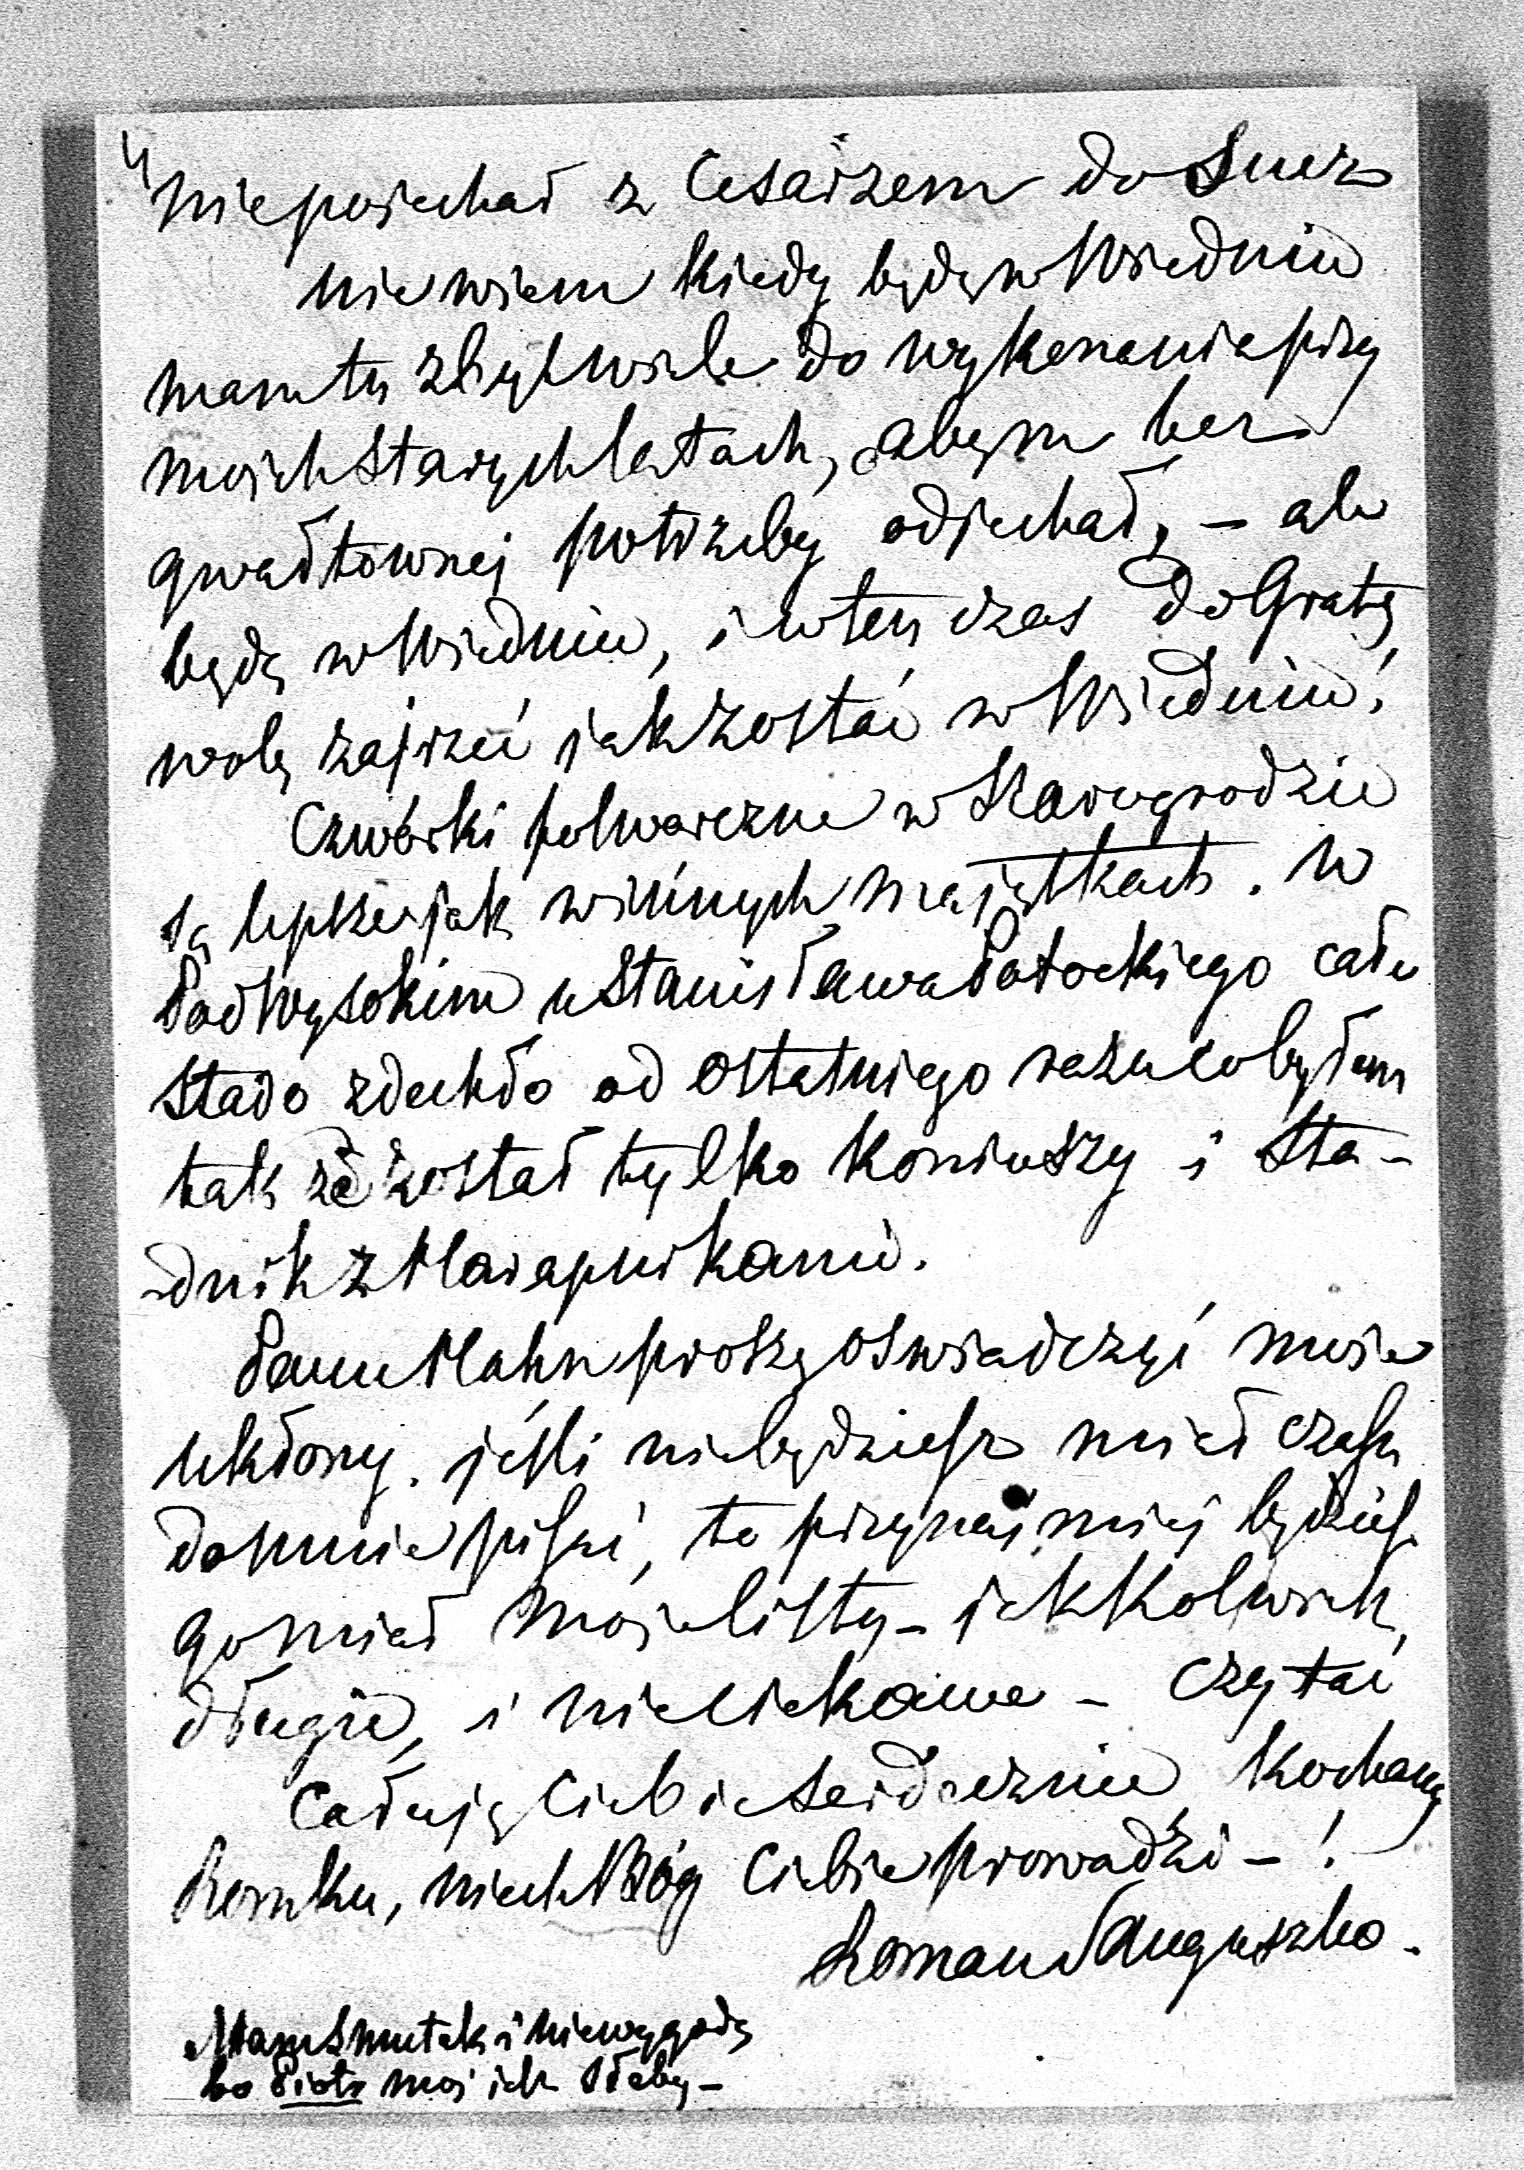 4/
nie pojechał z Cesarzem do Suez
nie wiem kiedy będę w Wiedniu
mam tu zbyt wiele do wykonania przy
moich starych latach, abym bez
gwałtownej potrzeby odjechał, – ale
będę w Wiedniu, i wtenczas do Gratz
wolę zajrzeć jak zostać w Wiedniu!
Czwórki folwarczne w Starogrodzie
są lepsze jak w innych majątkach. W
Podwysokim u Stanisława Potockiego całe
stado zdechło od ostatniego razu co byłem
tak że został tylko koniuszy i sta-
-dnik z Marapnikami.
Panu Mahn proszę oświadczyć moje
ukłony. jeśli niebędziesz miał czasu
do mnie pisać, to przynajmniej będziesz
go miał moje listy – jakkolwiek
długie, i nieciekawe – czytać
Całuję Ciebie serdecznie kochany
Romku, niech Bóg Ciebie prowadzi – !
Roman Sanguszko.
Mam smutek i niewygodę
bo Piotr moj jest słaby –